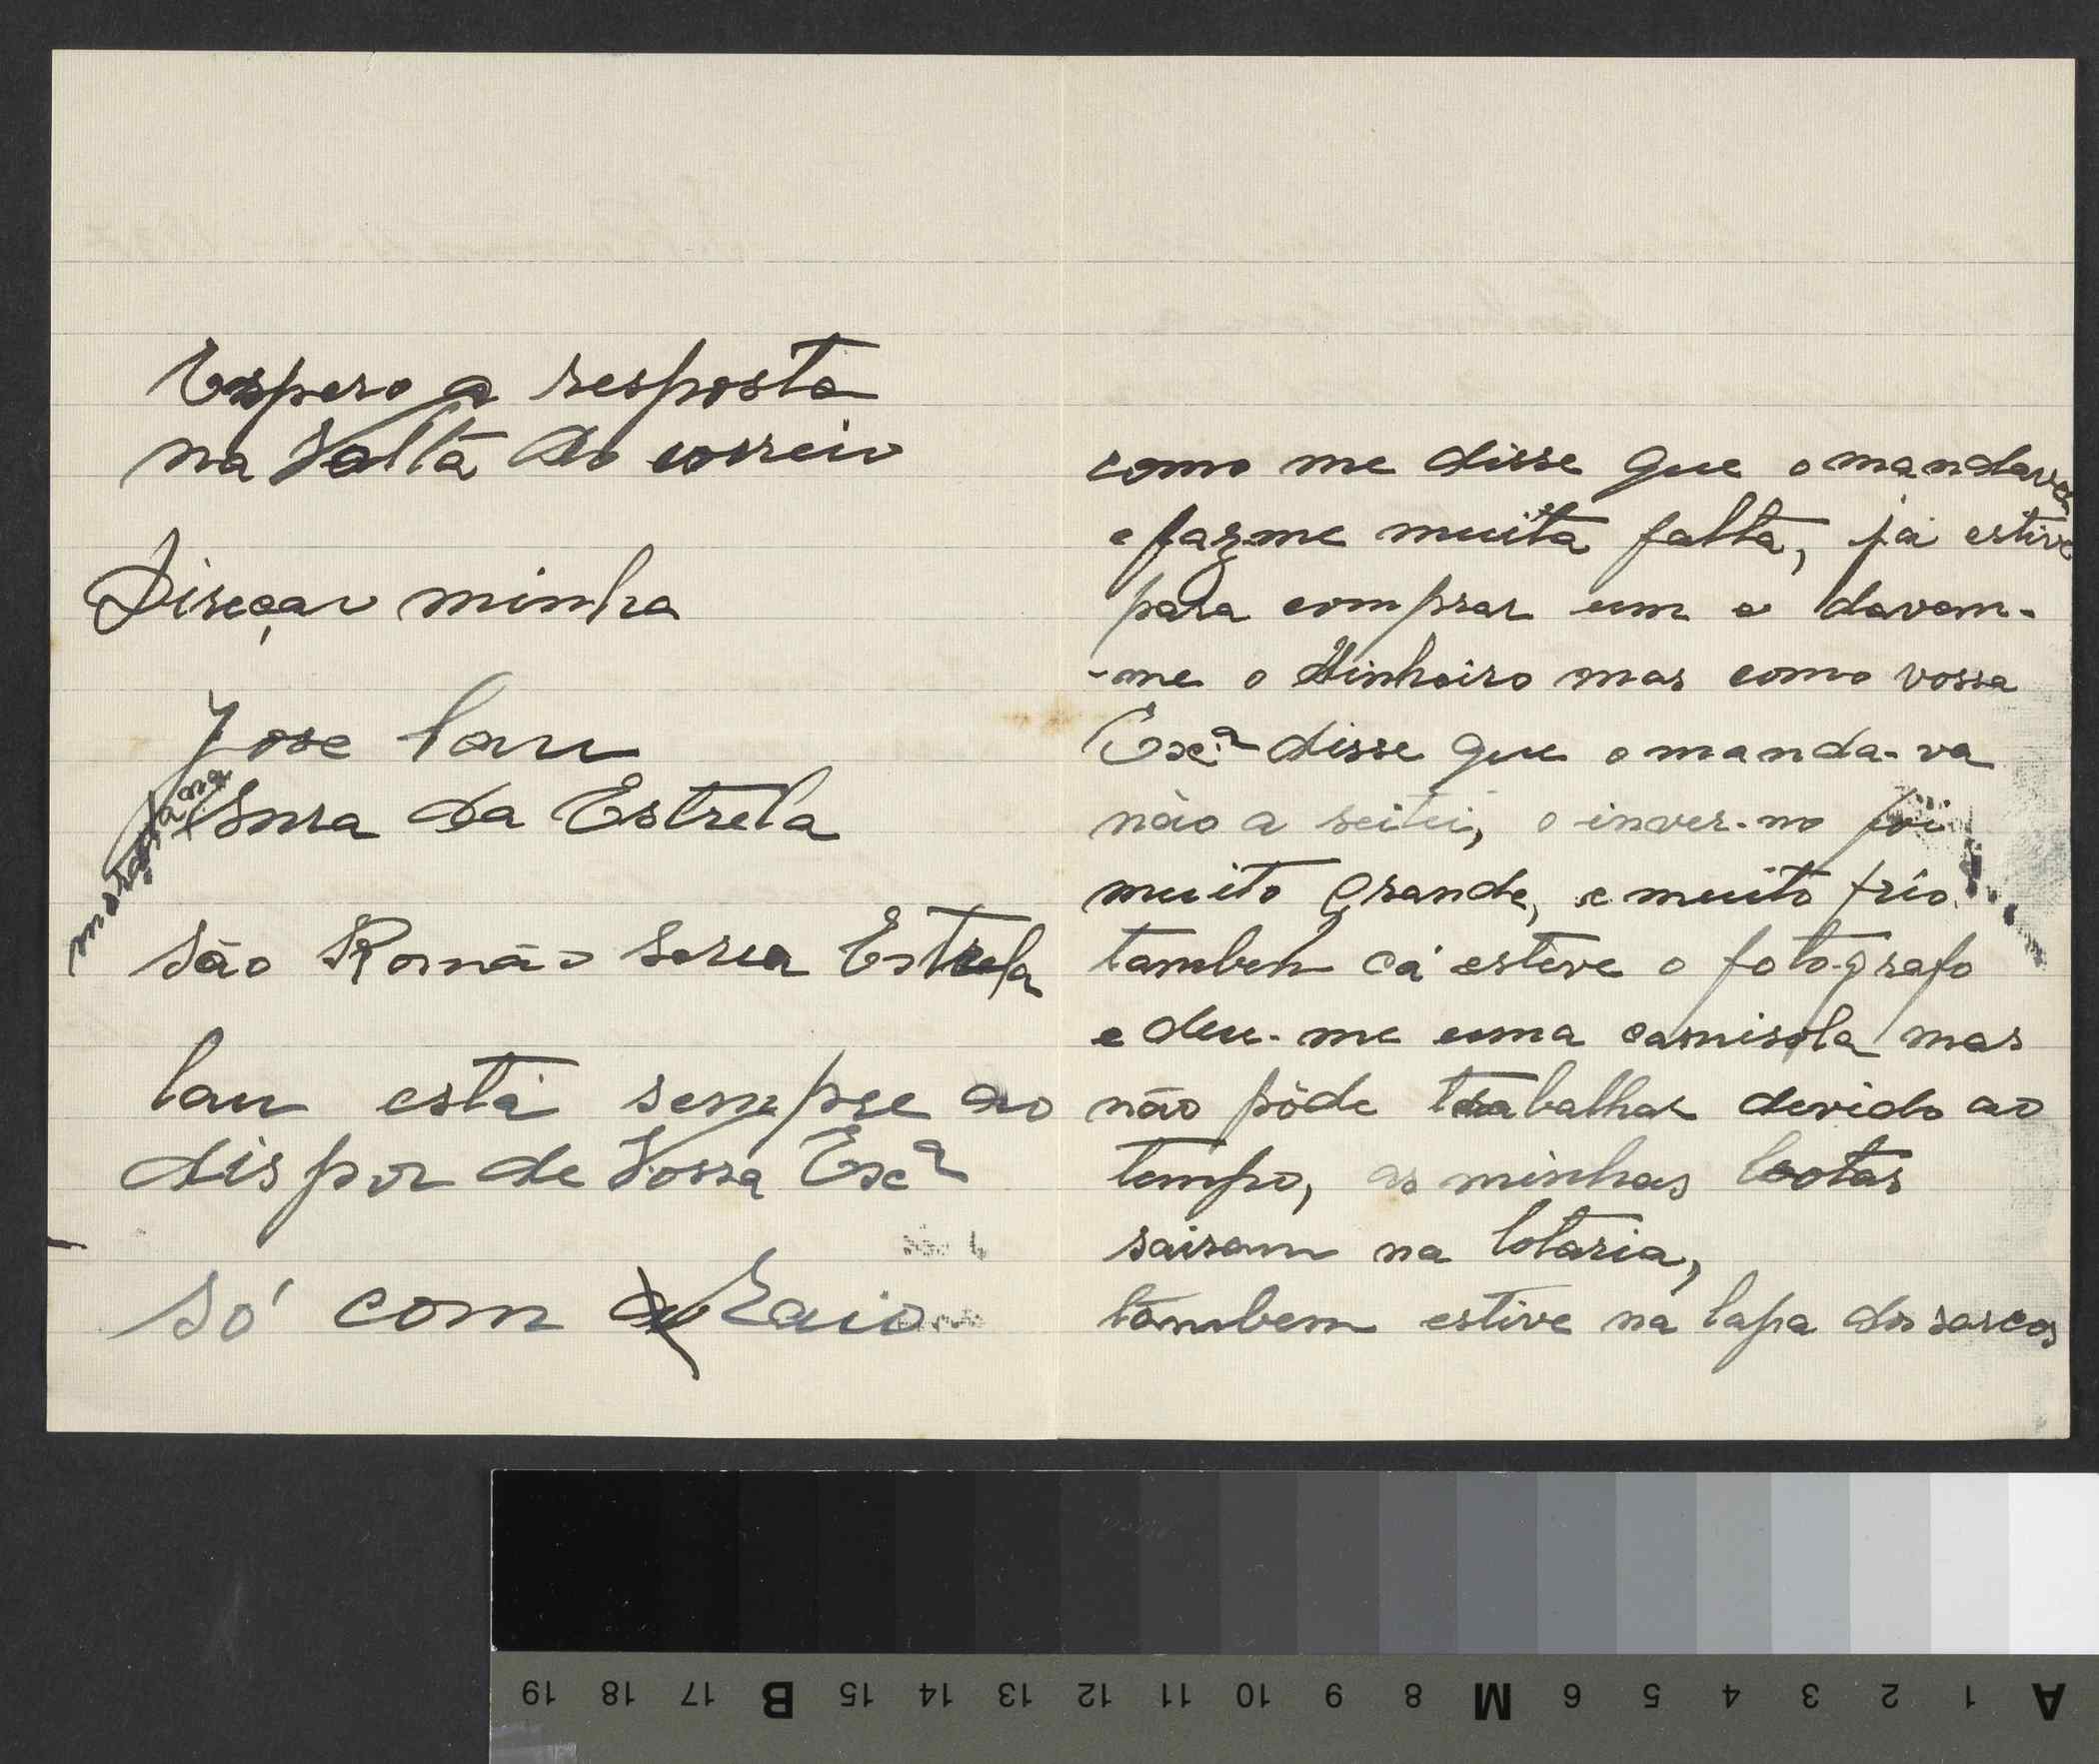 Espero a resposta
na Volta do correio
Direçao minha
Jose lau
Snra da Estrela
São Romão Serra Estrela
lau está sempre ao
dispor de Vossa Exª
Só com o Raio
como me disse que o mandava
e faz-me muita falta, já estive
para comprar um e davam-
-me o dinheiro mas como vossa
Exª disse que o manda-va
não a seitei, o inver-no foi
muito grande, e muito frio.
tambem cá esteve o fotografo
e deu-me uma camisola mas
não pôde trabalhar devido ao
tempo, as minhas botas
sairam na lotaria,
tambem estive na lapa dos
A 1 2 3 4 5 6 M 8 9 10 11 12 13 14 15 B 17 18 19